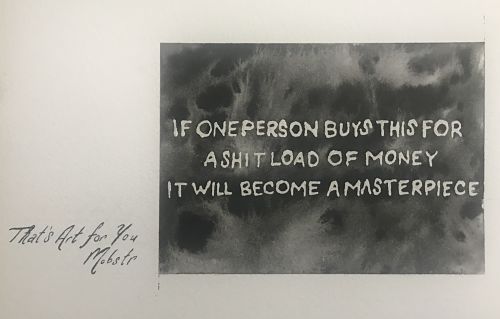 IF ONE PERSON BUYS THIS FOR
A SHIT LOAD OF MONEY
IT WILL BECOME A MASTERPIECE
That's Art for You
Mobstr